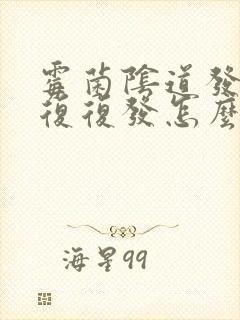 霉菌陰道發
復復發怎麼
海星99